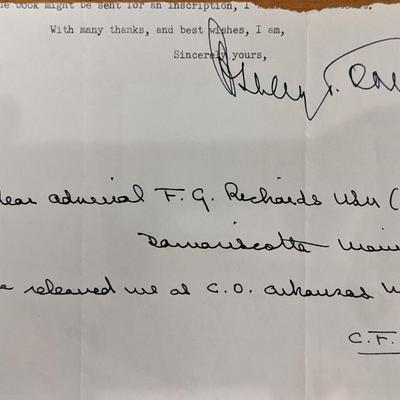 book might be sent for an inscription, I
With many thanks, and best wishes, I am,
Sincerely yours,
Rear admiral F. G. Richards USN (
Damariscotta Main
released me as C.O. Arkansas
C.F.